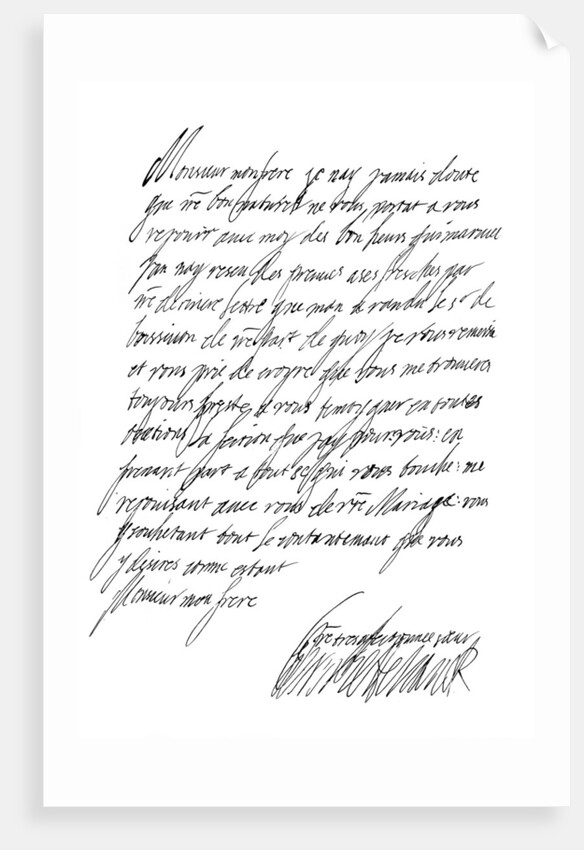 Monsieur mon frere je nay jamais doute
que vre bon naturel ne vous portat a vous
rejouir avec moy des bon heurs qui
jan nay reseu des preuves ases fresches par
vre derniere letre que man a randu le sr de
de vre part de quoy je vous remersie
et vous prie de croyre que vous me trouveres
toujours preste a vous temoygner en toutes
que jay pour vous: en
prenant part a tout se qui vous touche: me
rejouisant avec vous de vre Mariage: vous
y souhetant tout le contantemant que vous
y desires comme estant
Monsieur mon frere
vre tres affectionnee sœur